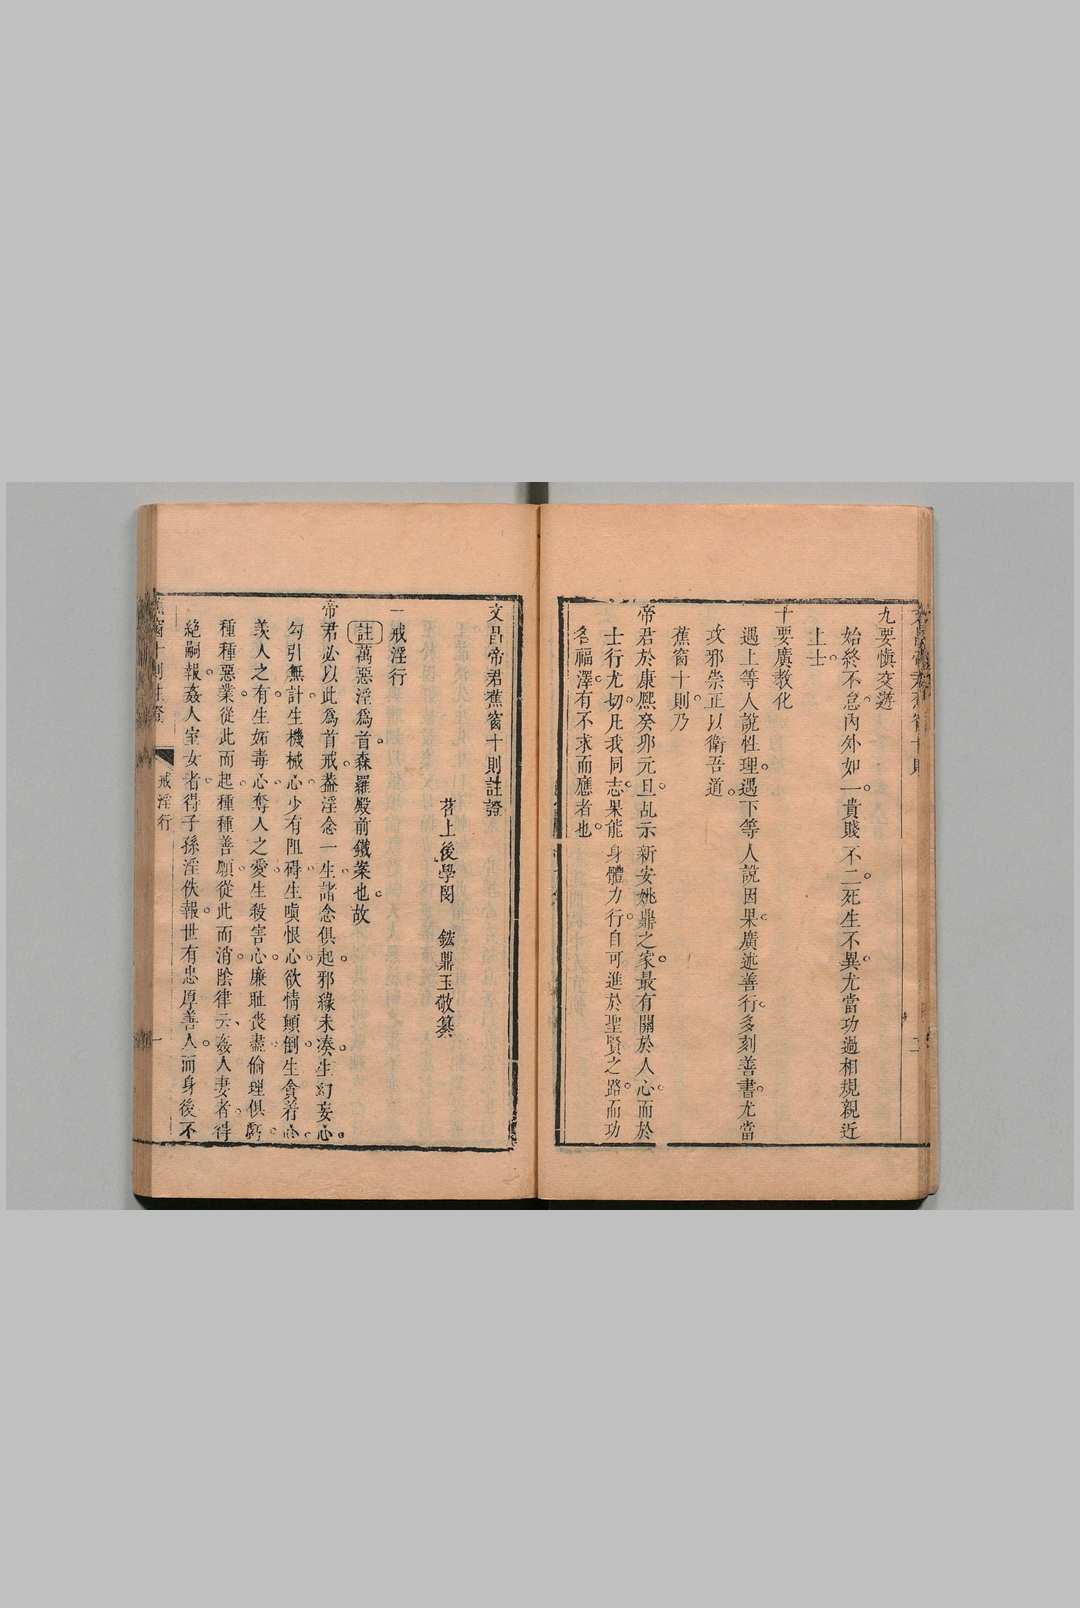 九要愼交遊
始終不怠內外如一貴賤不二死生不異尤當功過相規親近
上士
十要廣敎化
遇上等人說性理遇下等人說因果廣述善行多刻善書尤當
攻邪崇正以衛吾道
蕉窗十則乃
帝君於康熙癸卯元旦乩示新安姚鼎之家最有關於人心而於
士行尤切凡我同志果能身體力行自可進於聖賢之路而功
名福澤有不求而應者也
文昌帝君蕉窗十則註證
苕上後學閔 鋐鼎玉敬纂
一戒淫行
註萬惡淫爲首森羅殿前鐵案也故
帝君必以此爲首戒葢淫念一生諸念俱起邪緣未凑生幻妄心
勾引無計生機械心少有阻碍生嗔恨心欲情顛倒生貪着心
羨人之有生妬毒心奪人之愛生殺害心廉耻喪盡倫理俱虧
種種惡業從此而起種種善願從此而消陰律云姦人妻者得
絶嗣報姦人室女者得子孫淫佚報世有忠厚善人而身後不
蕉窗十則註證 戒淫行 一